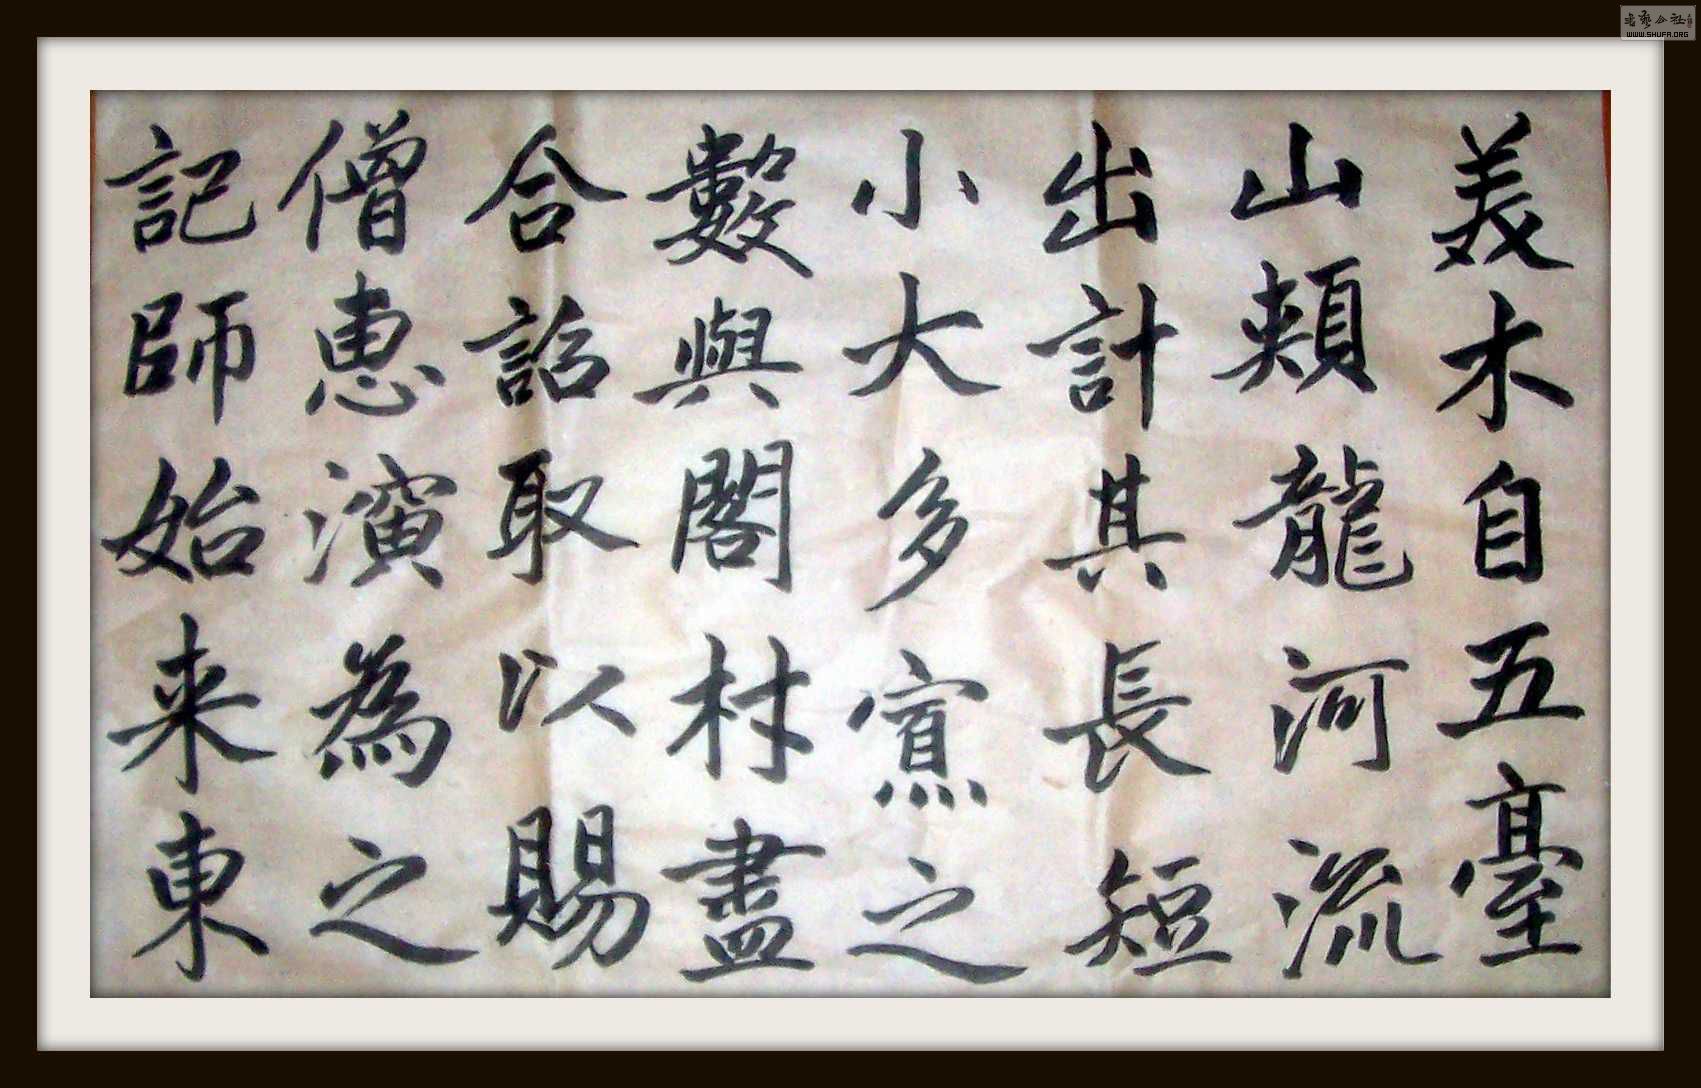 美木自五臺
山頰龍河流
出計其長短
小大多寡之
數與閣材盡
合詔取以賜
僧惠演為之
記師始来東
书艺公社
WWW.SHUFA.ORG